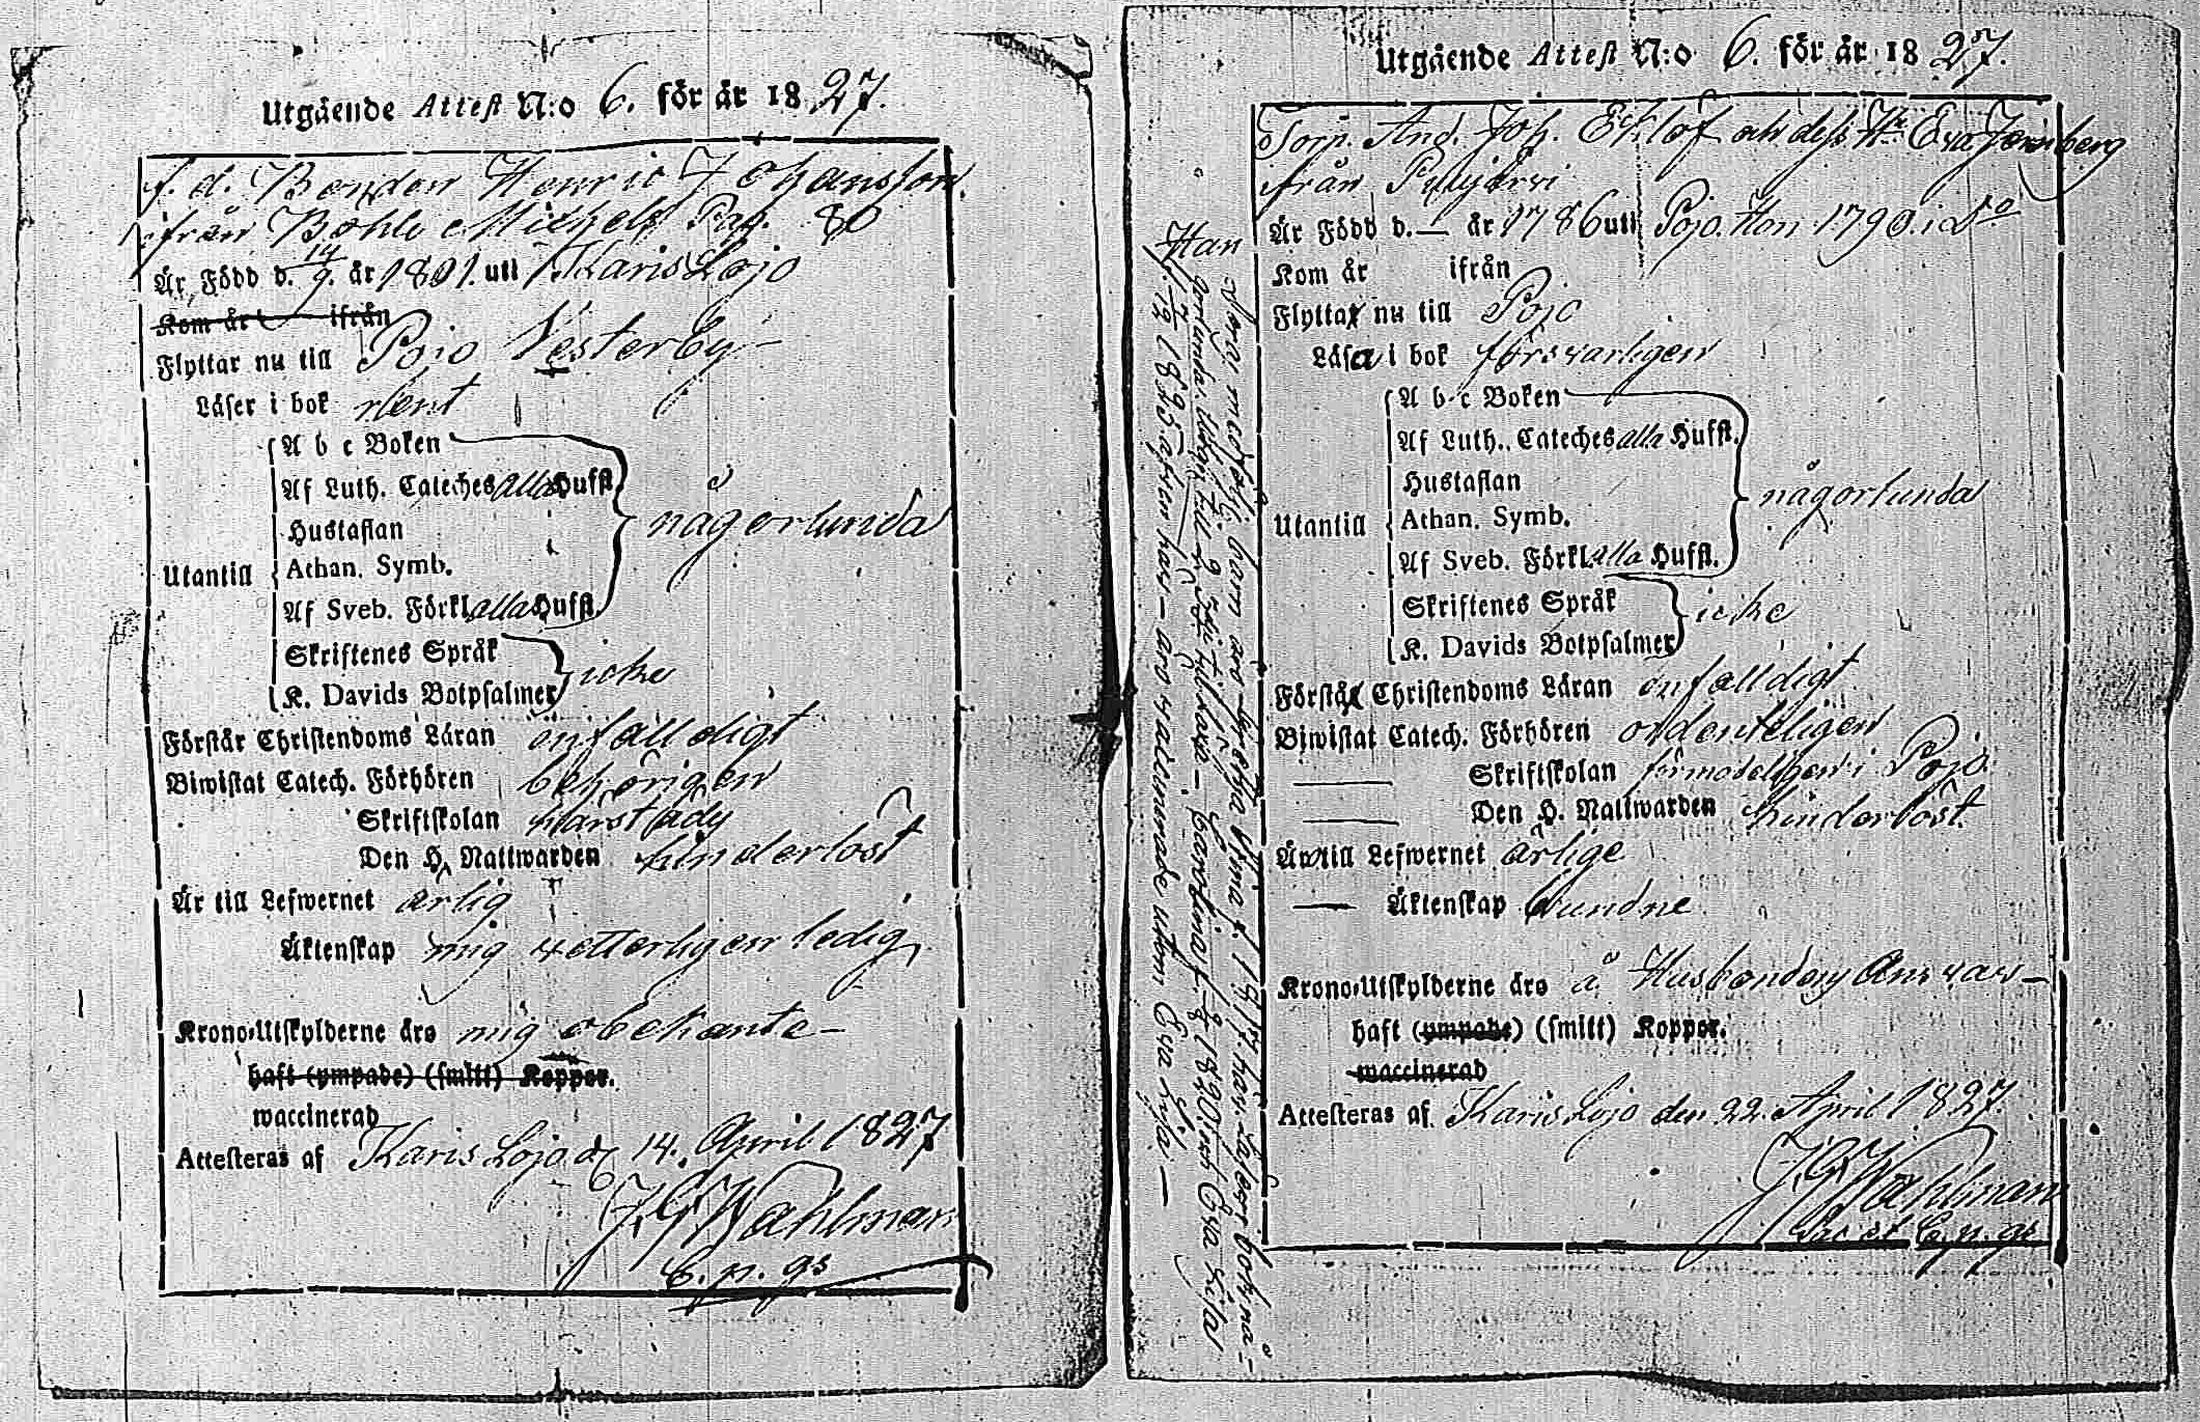 Utgående Attest N:o 6. för år 1827.
f. d. Bonden Henric Johansson
ifrån Bohle Michels Pag. 80
Är Född d. 14/9. år 1801. uti Karis Lojo
Kom år ifrån
Flyttar nu till Pojo Vesterby
Läser i bok rent
A b c Boken
Af Luth. Cateches alla Hufst.
Hustaflan
någorlunda
Athan. Symb.
Utantill
Af Sveb. Förkl. alla Hufst.
Skriftenes Språk
icke
K. Davids Botpsalmer
Förstår Christendoms Läran enfalldigt
Biwistat Catech. Förhören behörigen
Skriftskolan härstädes
Den H. Nattwarden hinderlöst
Är till Lefwernet ärlig
Äktenskap mig vetterligen ledig
Krono-Utskylderne äro mig obekante
haft (ympade) (smitt) Koppor.
waccinerad
Attesteras af Karis Lojo d. 14. April 1827
J. G. Wahlman
C. p. gs
Utgående Attest N:o 6. för år 1827.
Torp. And. Joh. Eklöf och dess Hu Eva
från Pulljärvi
Är Född d. — år 1786 uti Pojo. Hon 1790. i Do
Kom år ifrån
Flyttar nu till Pojo
Läsa i bok försvarligen
A b c Boken
Af Luth. Cateches alla Hufst.
Hustaflan
någorlunda
Athan. Symb.
Utantill
Af Sveb. Förkl. alla Hufst.
Skriftenes Språk
icke
K. Davids Botpsalmer
Förstå Christendoms Läran enfalldigt
Biwistat Catech. Förhören ordenteligen
Skriftskolan förmodeligen i Pojo.
Den H. Nattwarden hinderlöst.
Äro till Lefwernet ärlige
Äktenskap bundne
Krono-Utskylderne äro å Husbondens Ansvar
haft (ympade) (smitt) Koppor.
waccinerad
Attesteras af Karis Lojo den 22. April 1827.
J. G. Wahlman
Vac et C. p. gs
Han
barn äro f. 1817 har bok nå-
gorlunda, till f. 1820. och Eva Lisa
f. 1825. äro vaccinerade utom Eva Lisa. —